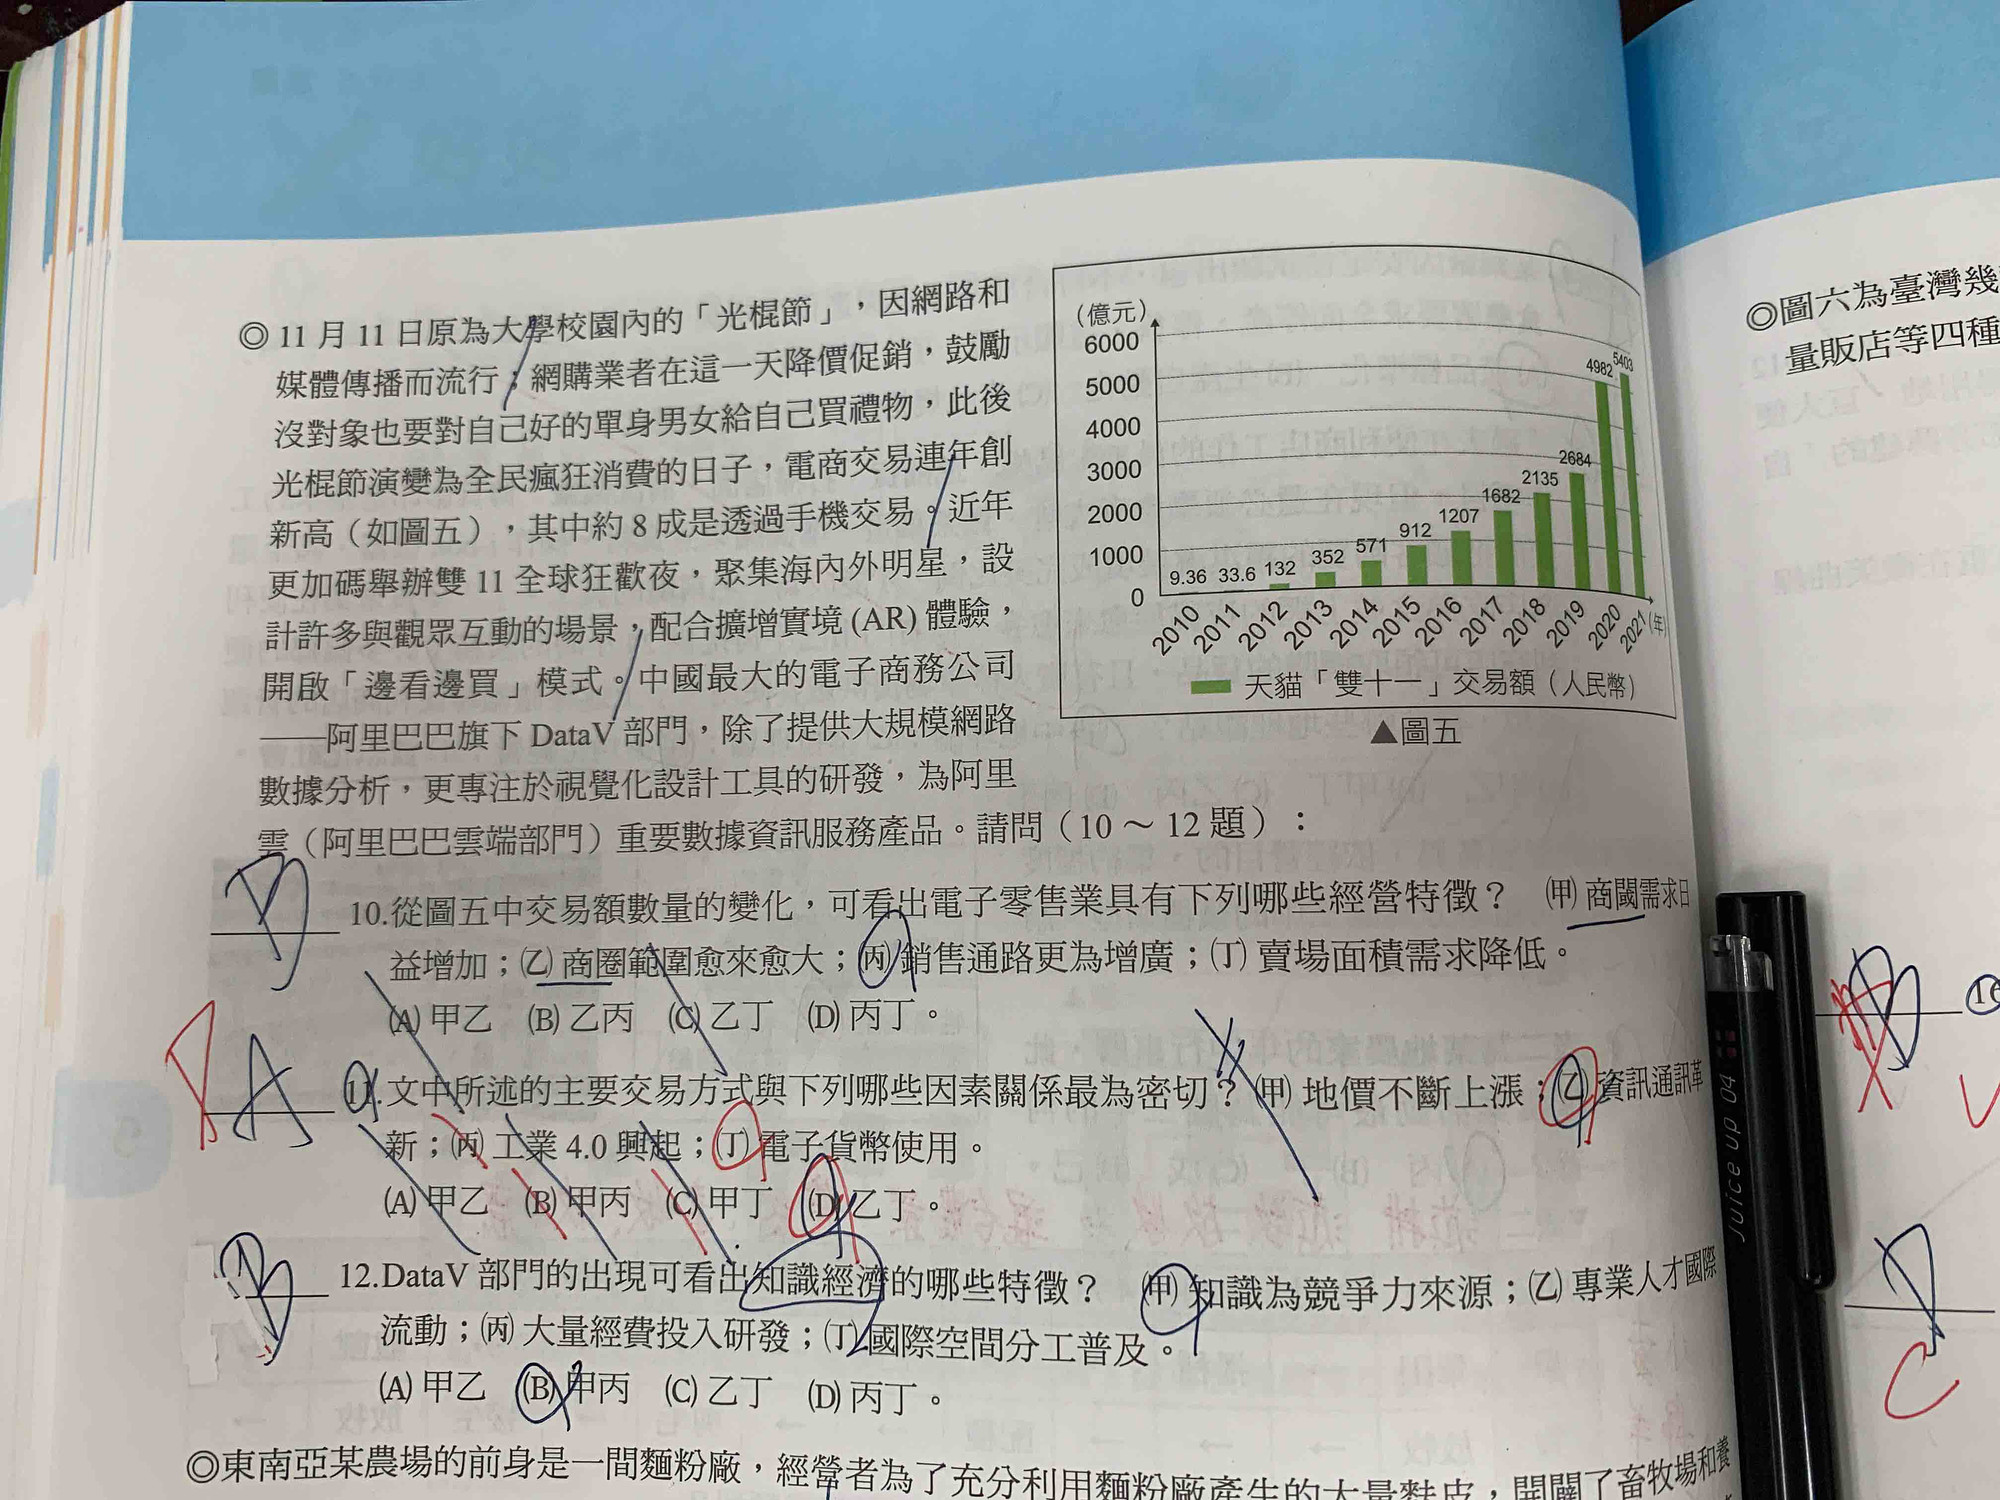 ◎11月11日原為大學校園內的「光棍節」，因網路和
媒體傳播而流行；網購業者在這一天降價促銷，鼓勵
沒對象也要對自己好的單身男女給自己買禮物，此後
光棍節演變為全民瘋狂消費的日子，電商交易連年創
新高（如圖五），其中約8成是透過手機交易。近年
更加碼舉辦雙11全球狂歡夜，聚集海內外明星，設
計許多與觀眾互動的場景，配合擴增實境(AR)體驗，
開啟「邊看邊買」模式。中國最大的電子商務公司
——阿里巴巴旗下DataV部門，除了提供大規模網路
數據分析，更專注於視覺化設計工具的研發，為阿里
雲（阿里巴巴雲端部門）重要數據資訊服務產品。請問（10～12題）：
（億元）
6000
5000
4000
3000
2000
1000
0
9.36 33.6 132 352 571 912 1207 1682 2135 2684 4982 5403
2010 2011 2012 2013 2014 2015 2016 2017 2018 2019 2020 2021 (年)
天貓「雙十一」交易額（人民幣）
▲圖五
D
10.從圖五中交易額數量的變化，可看出電子零售業具有下列哪些經營特徵？ (甲)商閾需求日
益增加；(乙)商圈範圍愈來愈大；(丙)銷售通路更為增廣；(丁)賣場面積需求降低。
(A)甲乙 (B)乙丙 (C)乙丁 (D)丙丁。
A
11.文中所述的主要交易方式與下列哪些因素關係最為密切？(甲)地價不斷上漲；(乙)資訊通訊革
新；(丙)工業4.0興起；(丁)電子貨幣使用。
(A)甲乙 (B)甲丙 (C)甲丁 (D)乙丁。
B
12.DataV部門的出現可看出知識經濟的哪些特徵？ (甲)知識為競爭力來源；(乙)專業人才國際
流動；(丙)大量經費投入研發；(丁)國際空間分工普及。
(A)甲乙 (B)甲丙 (C)乙丁 (D)丙丁。
◎東南亞某農場的前身是一間麵粉廠，經營者為了充分利用麵粉廠產生的大量麩皮，開闢了畜牧場和養
◎圖六為臺灣幾
量販店等四種
16
D
C
Juice up 04